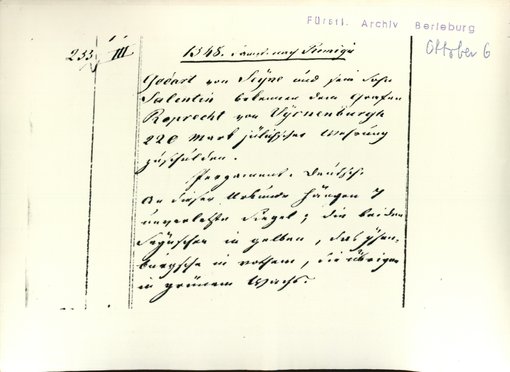 Fürstl. Archiv Berleburg
Oktober 6
233 III 1348. nach
Godart von Seyne und sein Sohn
Salentin bekennen dem Grafen
Ruprecht von Vyrnenburgh
220 Mark jülischer Wehrung
zuschulden.
Pergament. Deutsch.
An dieser Urkunde hängen 7
unverletzte Siegel; die beiden
Seynschen in gelbem, das ysen-
burgsche in rothem, die übrigen
in grünem Wachs.